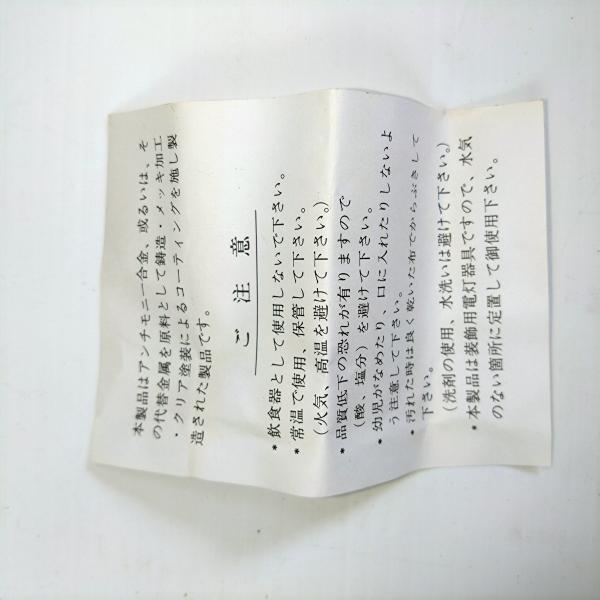 本製品はアンチモニー合金、或るいは、そ
の代替金属を原料として鋳造・メッキ加工
・クリア塗装によるコーティングを施し製
造された製品です。
ご注意
*飲食器として使用しないで下さい。
*常温で使用、保管して下さい。
(火気、高温を避けて下さい。)
*品質低下の恐れが有りますので
(酸、塩分)を避けて下さい。
*幼児がなめたり、口に入れたりしないよ
う注意して下さい。
*汚れた時は良く乾いた布でからぶきして
下さい。
(洗剤の使用、水洗いは避けて下さい。)
*本製品は装飾用電灯器具ですので、水気
のない箇所に定置して御使用下さい。